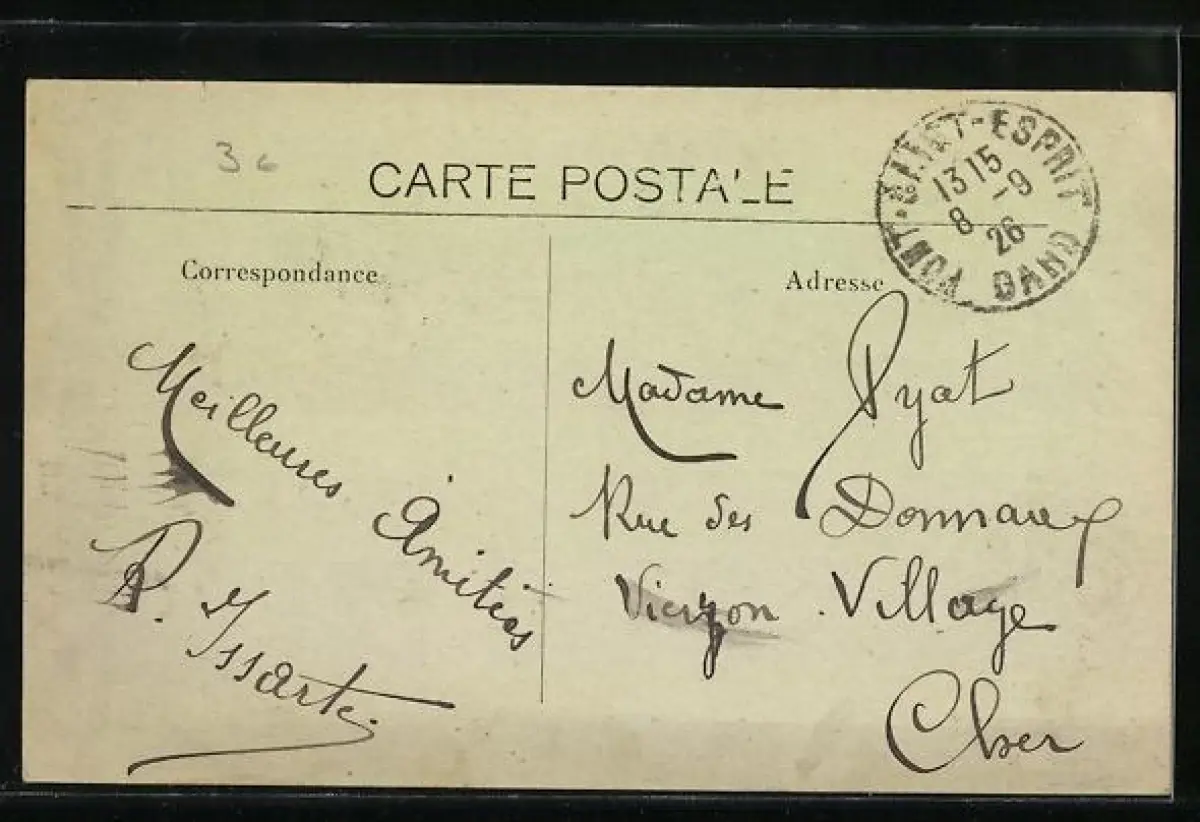 3 c
CARTE POSTALE
PONT-SAINT-ESPRIT
13 15
8 -9
26
GARD
Correspondance
Adresse
Meilleures Amitiés
R. Issarte
Madame Pyat
Rue des Donnaux
Vierzon Village
Cher